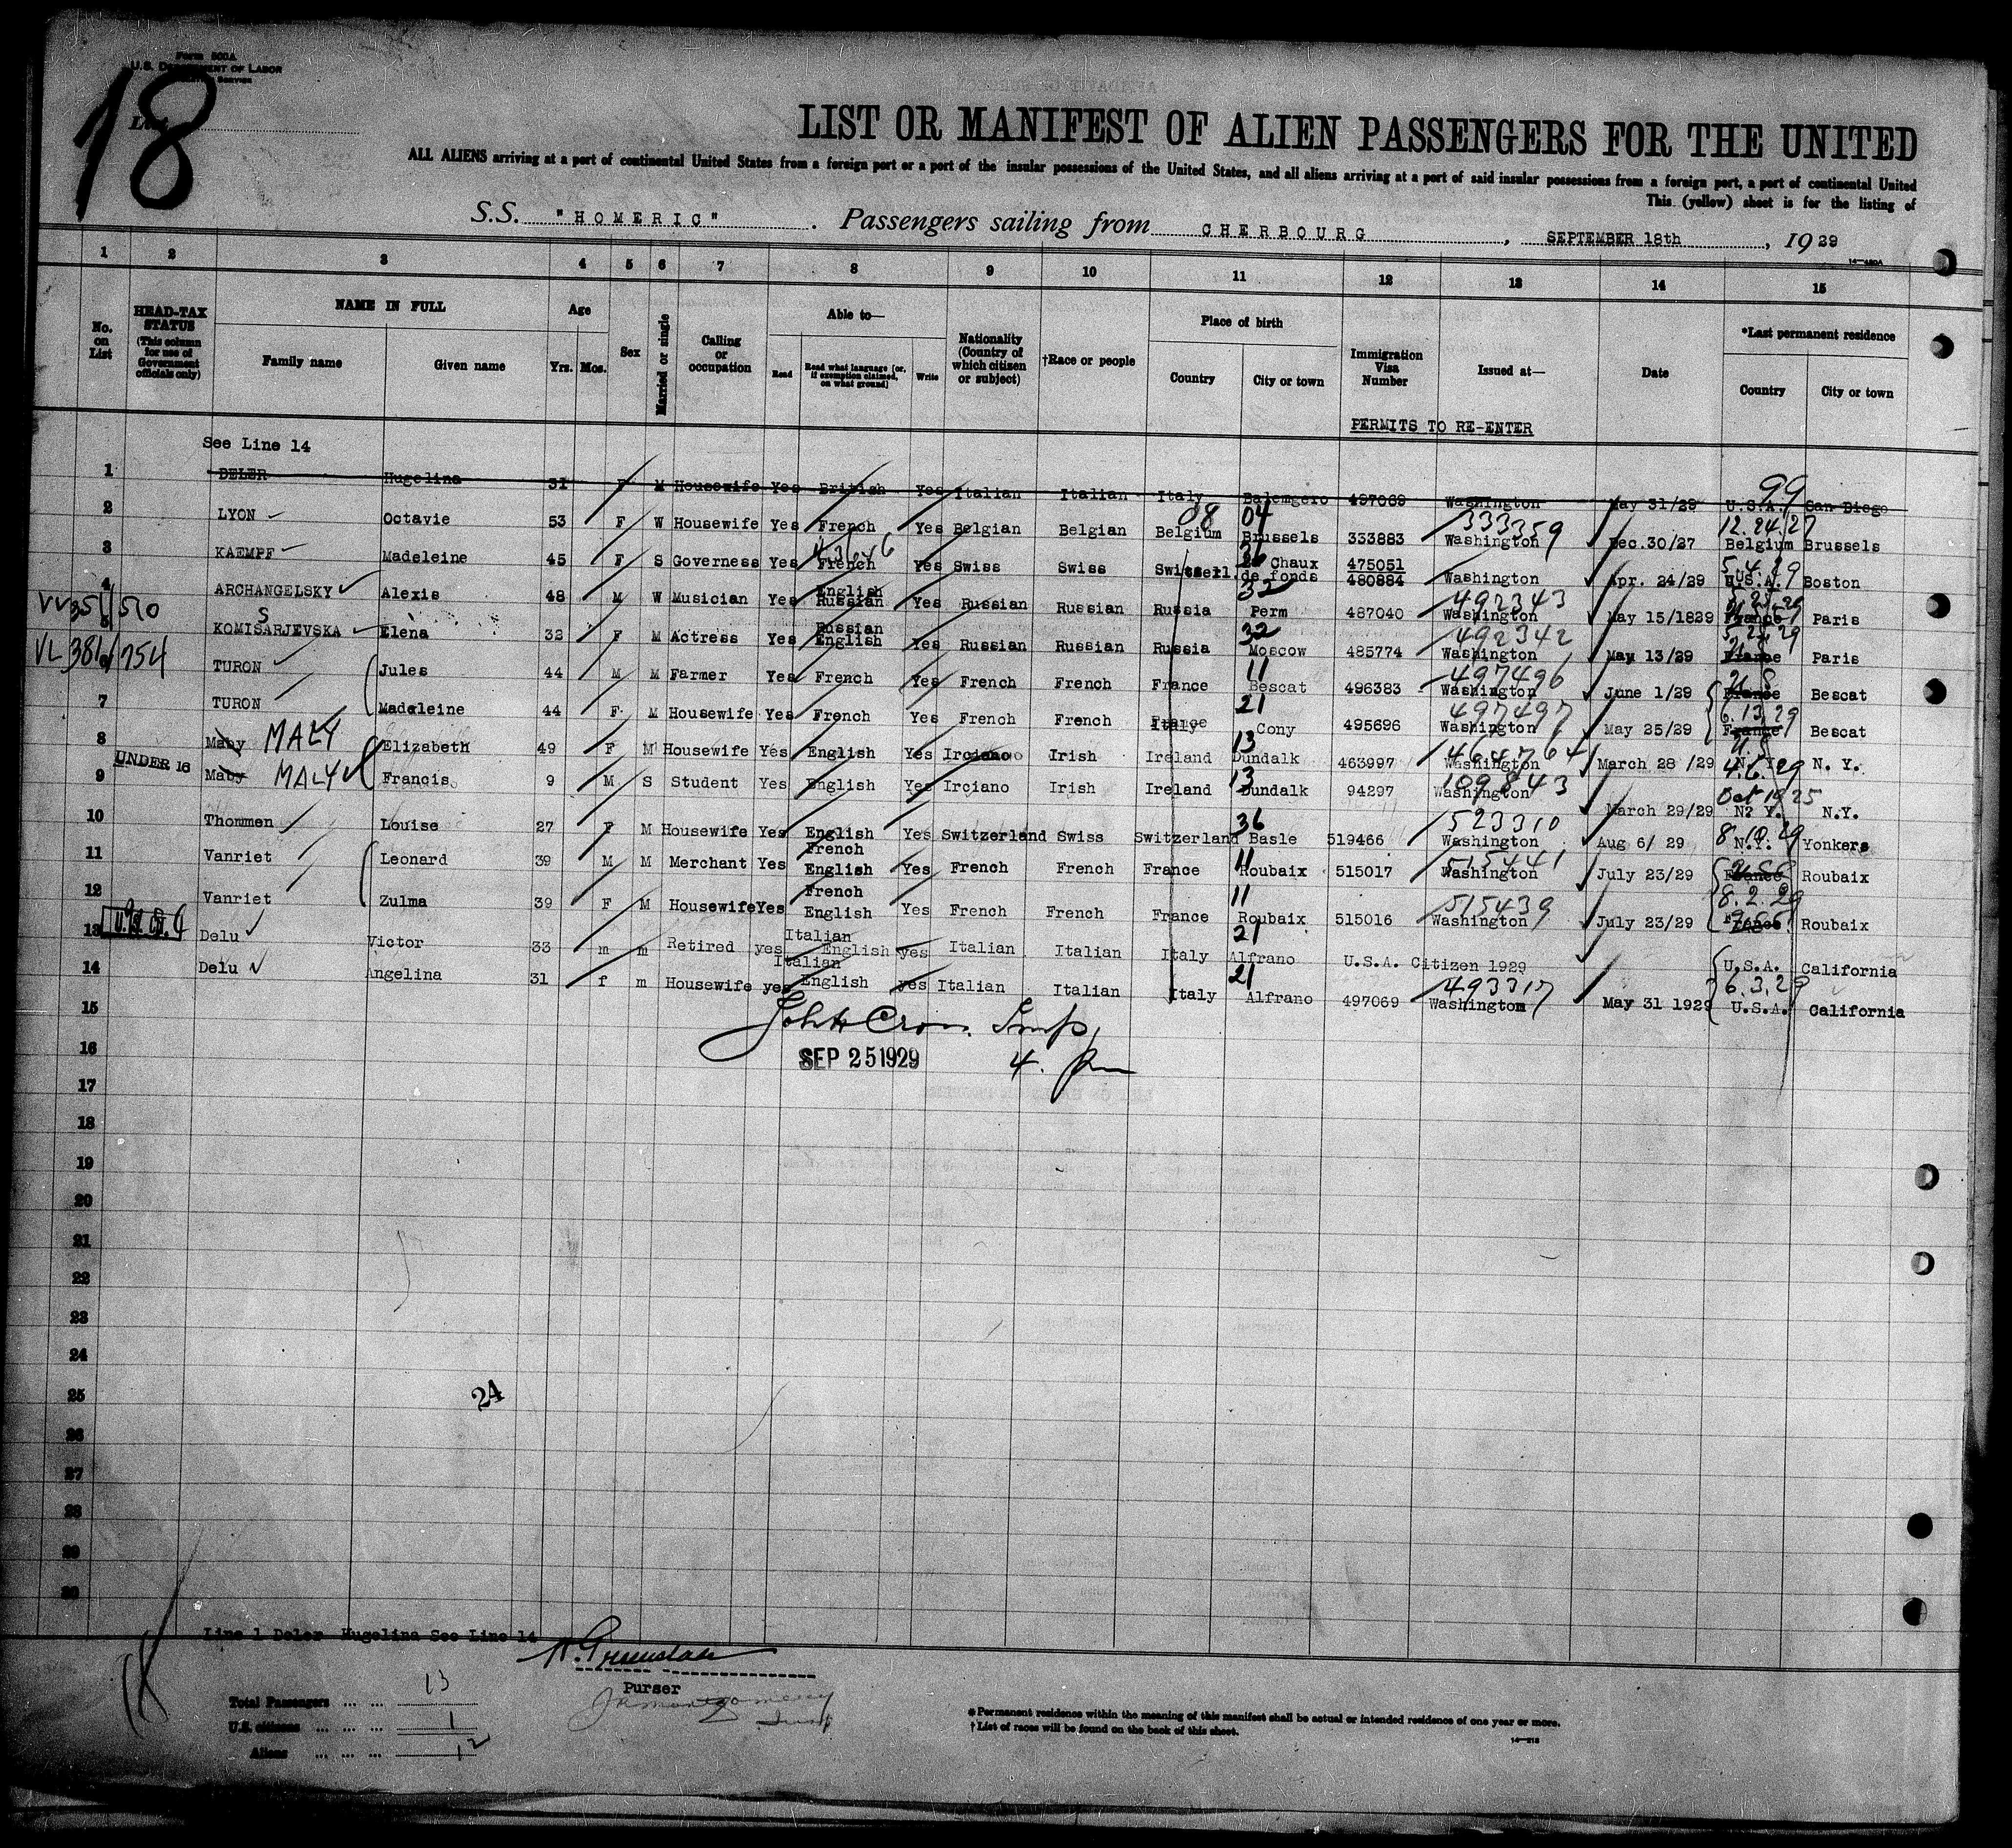 Form 500A
U.S. DEPARTMENT OF LABOR
18
List
LIST OR MANIFEST OF ALIEN PASSENGERS FOR THE UNITED
ALL ALIENS arriving at a port of continental United States from a foreign port or a port of the insular possessions of the United States, and all aliens arriving at a port of said insular possessions from a foreign port, a port of continental United
This (yellow) sheet is for the listing of
S.S. "HOMERIC". Passengers sailing from CHERBOURG, SEPTEMBER 18th, 1929
1 2 3 4 5 6 7 8 9 10 11 12 13 14 15
No. on List
HEAD-TAX STATUS (This column for use of Government officials only)
NAME IN FULL Family name Given name
Age Yrs. Mos.
Sex
Married or single
Calling or occupation
Able to— Read Read what language [or, if exemption claimed, on what ground] Write
Nationality (Country of which citizen or subject)
†Race or people
Place of birth Country City or town
Immigration Visa Number
Issued at—
Date
*Last permanent residence Country City or town
PERMITS TO RE-ENTER
See Line 14
99
1 DELER Hugelina 31 F M Housewife Yes British Yes Italian Italian Italy Balemgero 497069 Washington May 31/29 U.S.A. San Diego
08 04 333359 12.24.27
2 LYON Octavie 53 F W Housewife Yes French Yes Belgian Belgian Belgium Brussels 333883 Washington Dec.30/27 Belgium Brussels
3 KAEMPF Madeleine 45 F S Governess Yes French Yes Swiss Swiss Switzerl. Chaux de fonds 475051 480884 Washington Apr. 24/29 U.S.A. Boston
32 492343
4 ARCHANGELSKY Alexis 48 M W Musician Yes English Russian Yes Russian Russian Russia Perm 487040 Washington May 15/1829 France Paris
S 32 492342
5 KOMISARJEVSKA Elena 32 F M Actress Yes Russian English Yes Russian Russian Russia Moscow 485774 Washington May 13/29 France Paris
11 497496
TURON Jules 44 M M Farmer Yes French Yes French French France Bescat 496383 Washington June 1/29 France Bescat
21 497497 6.13.29
7 TURON Madeleine 44 F M Housewife Yes French Yes French French France Italy Cony 495696 Washington May 25/29 France Bescat
13
8 Maby MALY Elizabeth 49 F M Housewife Yes English Yes Irciano Irish Ireland Dundalk 463997 Washington March 28 /29 N. Y. N. Y.
13 109843 Oct 19 25
9 UNDER 16 Maby MALY Francis 9 M S Student Yes English Yes Irciano Irish Ireland Dundalk 94297 Washington March 29/29 N. Y. N.Y.
36 523310 8.10.29
10 Thommen Louise 27 F M Housewife Yes English Yes Switzerland Swiss Switzerland Basle 519466 Washington Aug 6/ 29 N.Y. Yonkers
11 515441
11 Vanriet Leonard 39 M M Merchant Yes French English Yes French French France Roubaix 515017 Washington July 23/29 France Roubaix
11 515439 8.2.29
12 Vanriet Zulma 39 F M Housewife Yes French English Yes French French France Roubaix 515016 Washington July 23/29 France Roubaix
21
13 Delu Victor 33 m m Retired yes Italian English yes Italian Italian Italy Alfrano U.S.A. Citizen 1929 U.S.A. California
21 493317 6.3.29
14 Delu Angelina 31 f m Housewife yes Italian English yes Italian Italian Italy Alfrano 497069 Washington May 31 1929 U.S.A. California
15
16 SEP 25 1929 4.
17
18
19
20
21
22
23
24
25
24
26
27
28
29
30
Line 1 Deler Hugelina See Line 14
Purser
Total Passengers ... ... 13
U.S. citizens ... ... ... 1
Aliens ... ... ... 12
* Permanent residence within the meaning of this manifest shall be actual or intended residence of one year or more.
† List of races will be found on the back of this sheet.